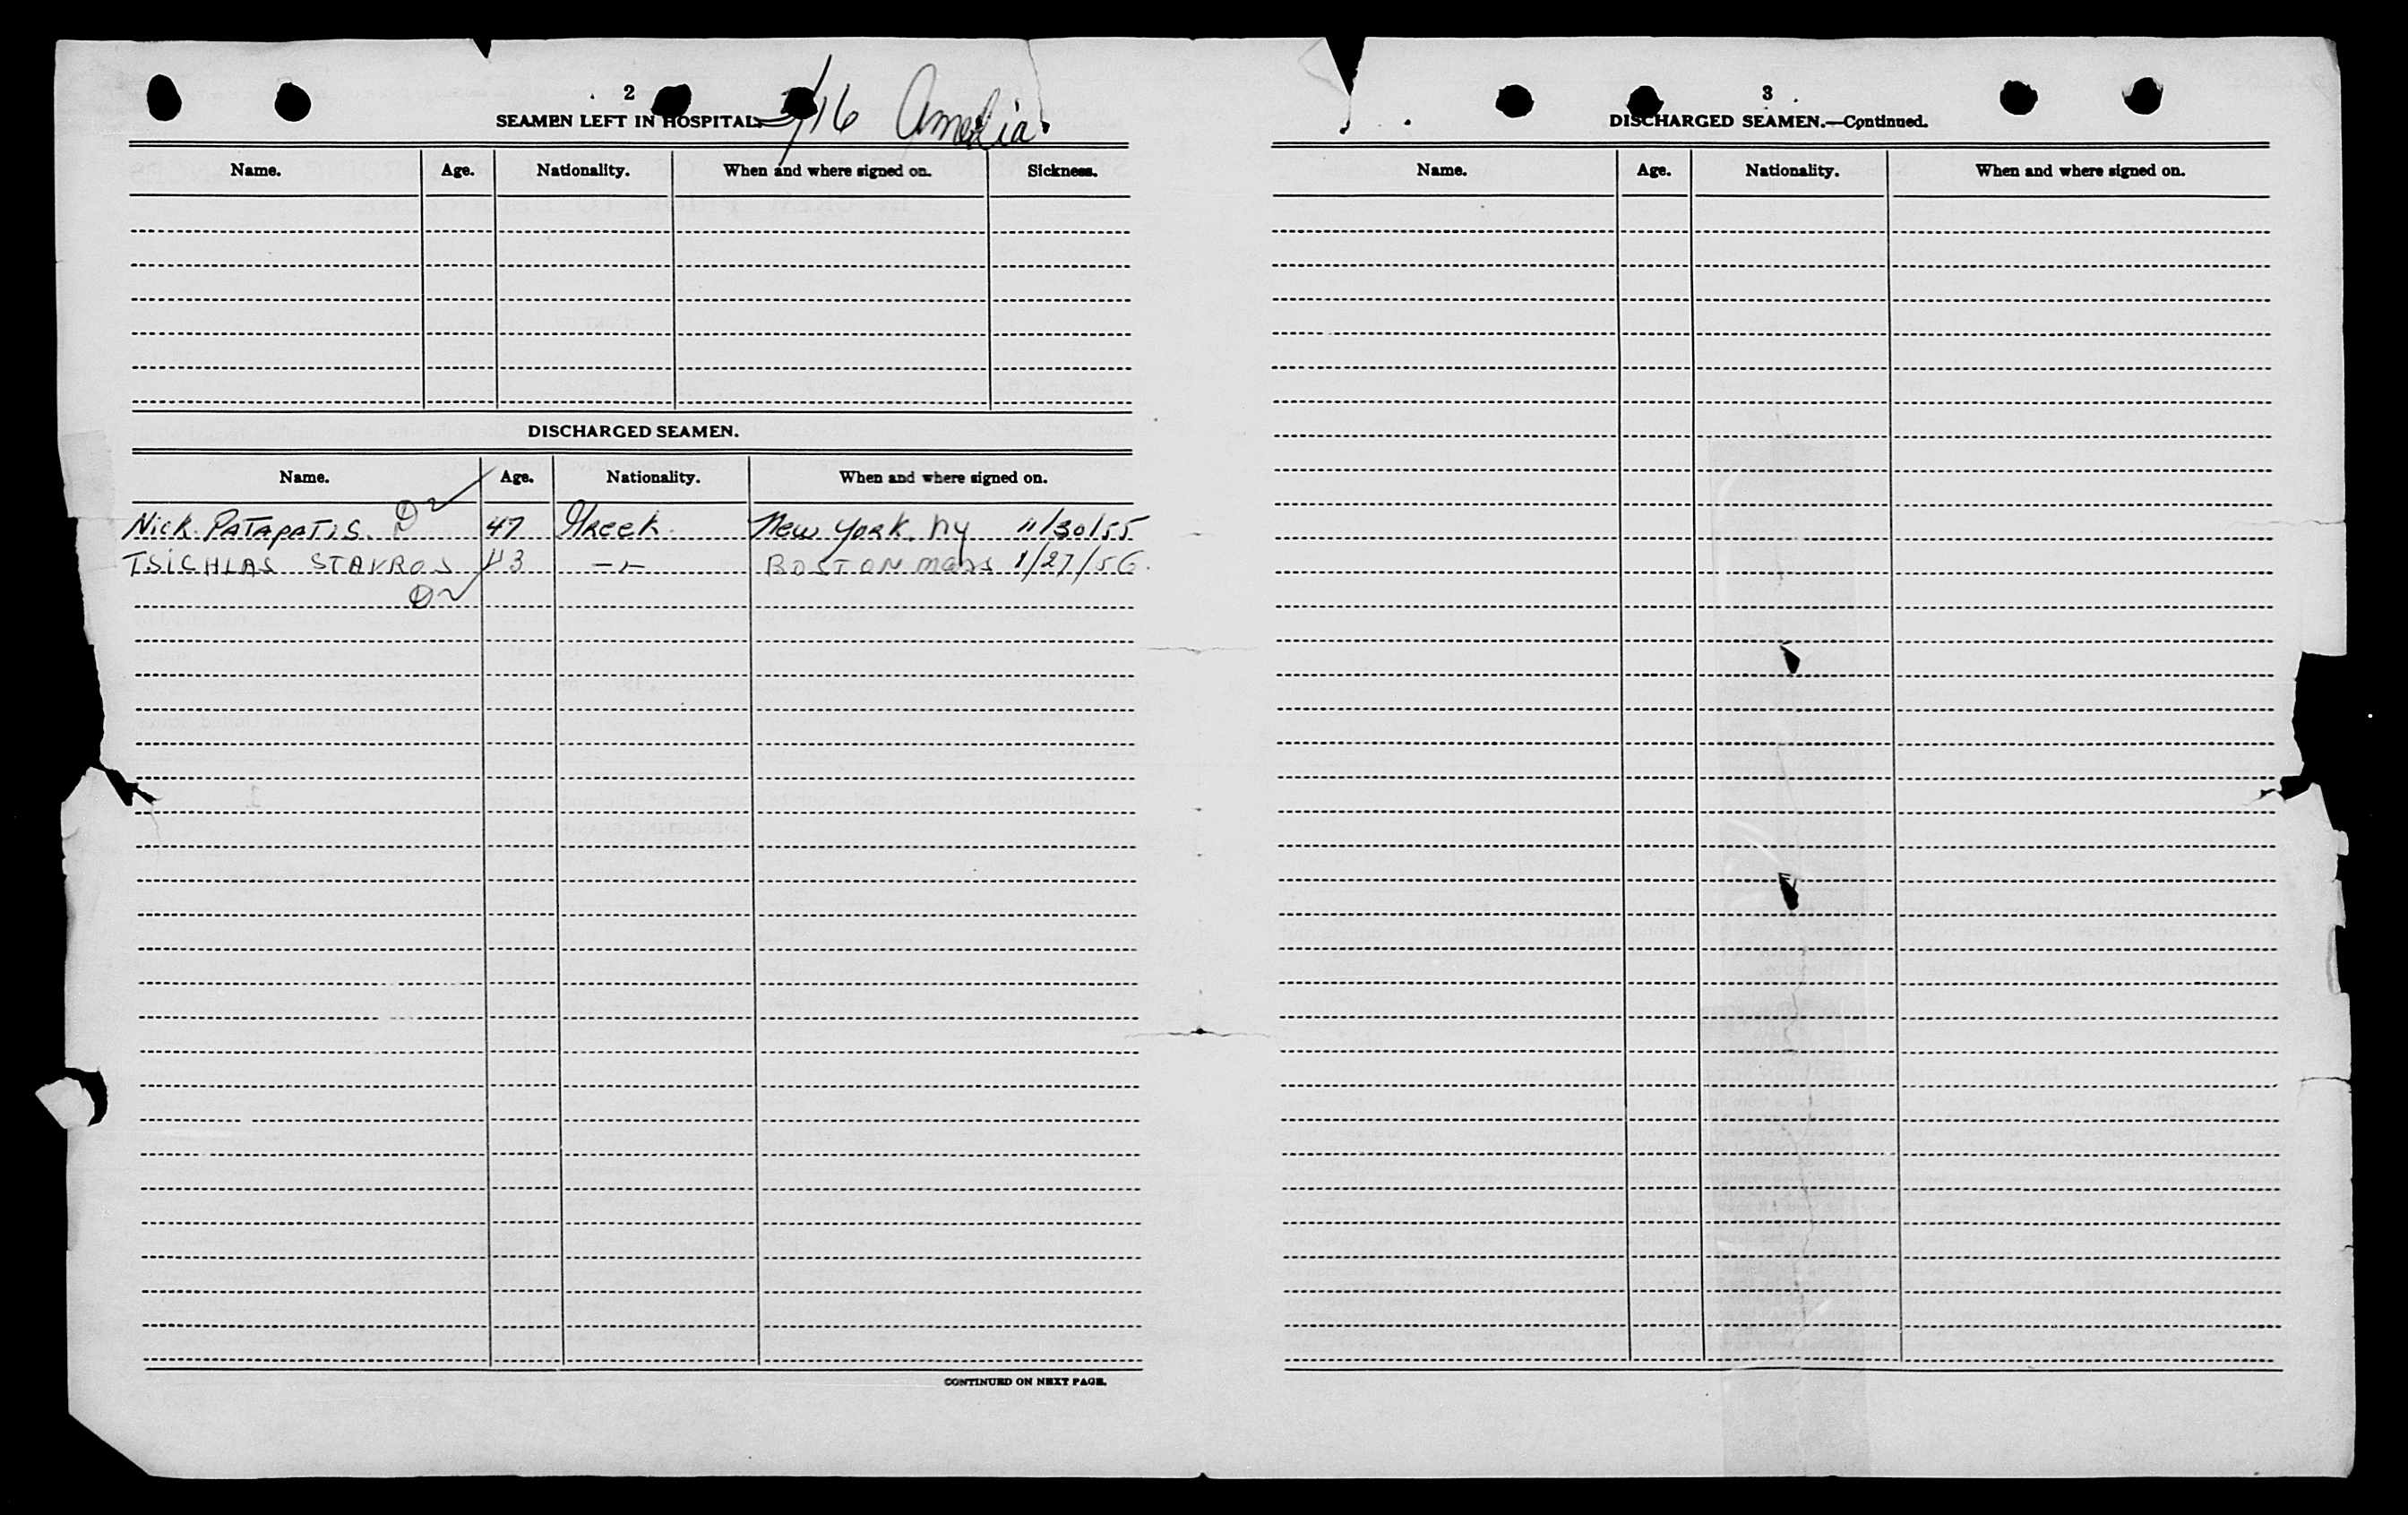 2
/16 Amelia
SEAMEN LEFT IN HOSPITAL.
Name. Age. Nationality. When and where signed on. Sickness.
DISCHARGED SEAMEN.
Name. Age. Nationality. When and where signed on.
Nick. PATAPATIS. 47 Greek. New York. Ny 11/30/55
TSICHLAS STAVROS 43 -"- BOSTON Mass 1/27/56.
CONTINUED ON NEXT PAGE.
3
DISCHARGED SEAMEN.—Continued.
Name. Age. Nationality. When and where signed on.